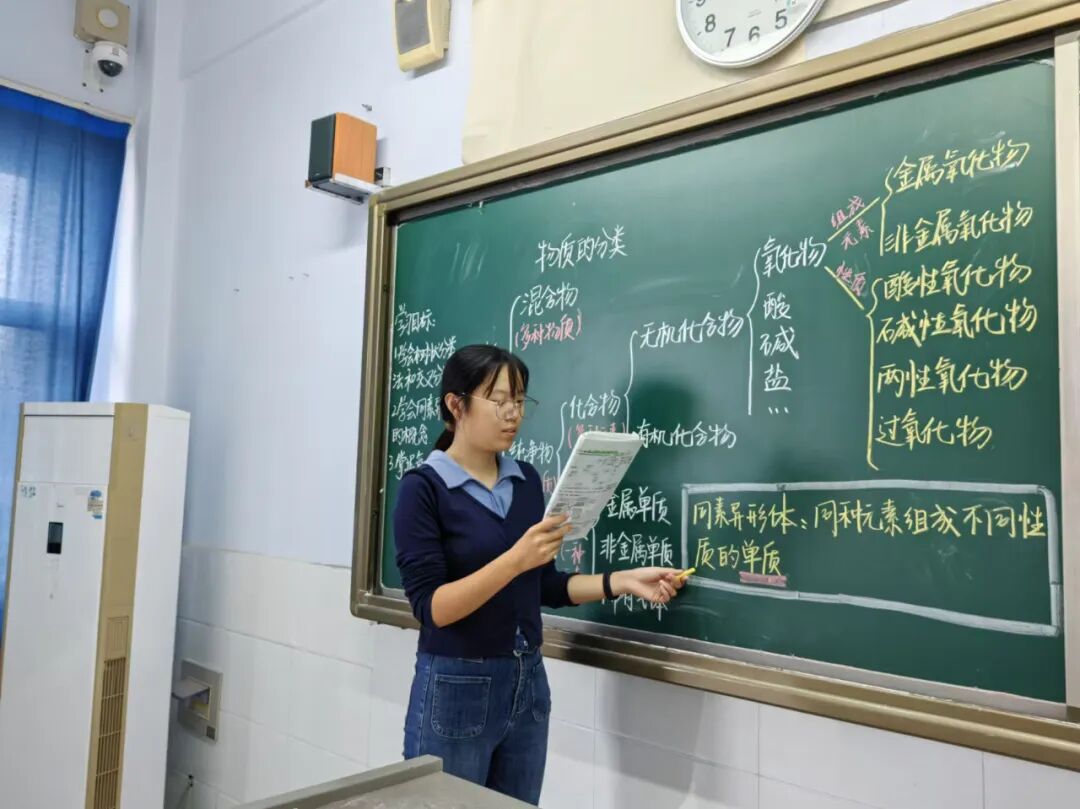 9
8
7
6
5
物质的分类
学习目标:
1.学会树状分类
法和交叉分
2.学会同素
的概念
混合物
(多种物质)
纯净物
化合物
无机化合物
有机化合物
氧化物
酸
碱
盐
...
组成
元素
性质
金属氧化物
非金属氧化物
酸性氧化物
碱性氧化物
两性氧化物
过氧化物
金属单质
非金属单质
(一种
同素异形体:同种元素组成不同性
质的单质